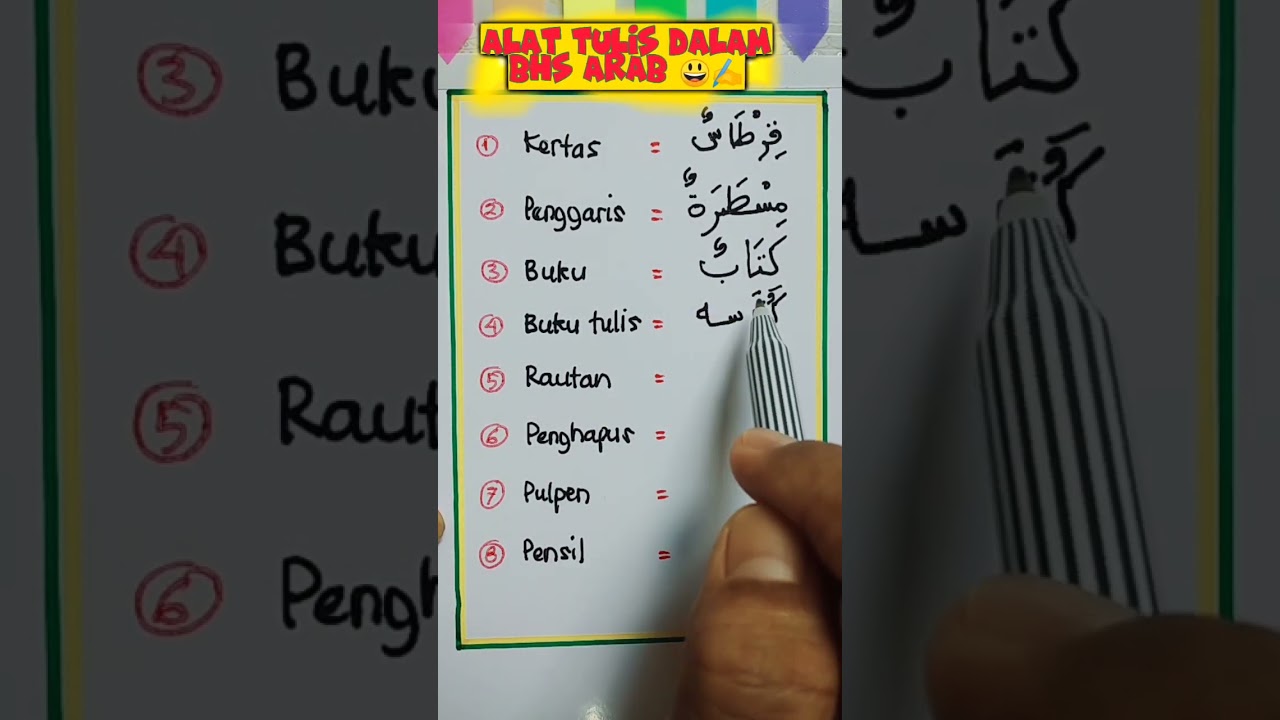 ALAT TULIS DALAM
BHS ARAB 😃✍️
1 Kertas = قِرْطَاسٌ
2 Penggaris = مِسْطَرَةٌ
3 Buku = كَتَابٌ
4 Buku tulis =
5 Rautan =
6 Penghapus =
7 Pulpen =
8 Pensil =